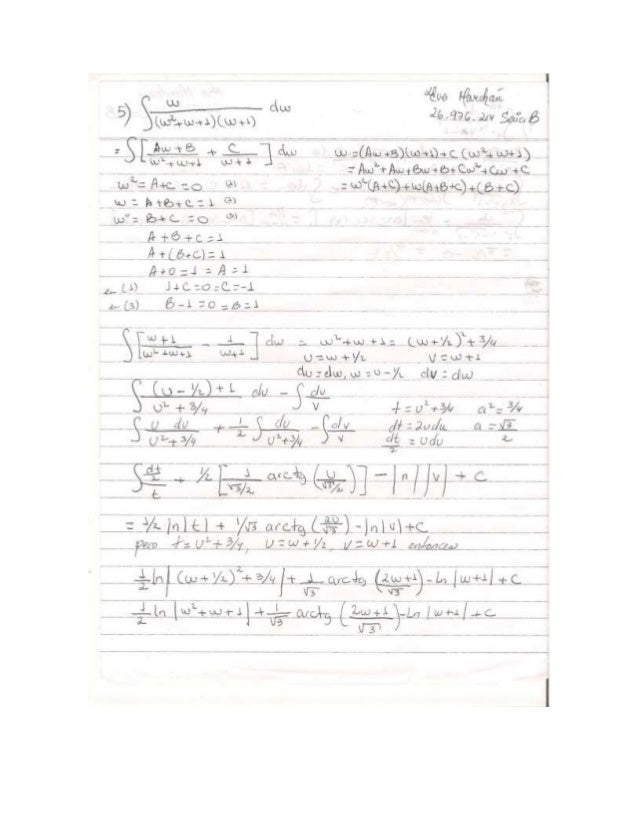 5) ∫ w / (w²+w+1)(w+1) dw
26.976.214 B
= ∫ [ Aw+B / w²+w+1 + C / w+1 ] dw   w = (Aw+B)(w+1)+C(w²+w+1)
= Aw²+Aw+Bw+B+Cw²+Cw+C
w² = A+C = 0 (1)   = w²(A+C)+w(A+B+C)+(B+C)
w = A+B+C = 1 (2)
w⁰ = B+C = 0 (3)
A+B+C = 1
A+(B+C) = 1
A+0 = 1 = A = 1
en (1)   1+C = 0 = C = -1
en (3)   B-1 = 0 = B = 1
∫ [ w+1 / w²+w+1 - 1 / w+1 ] dw = w²+w+1 = (w+½)²+3/4
U = w+½   V = w+1
du = dw, w = u-½   dv = dw
∫ (U-½)+1 / U²+3/4 du - ∫ dv / V
t = U²+3/4   a² = 3/4
∫ U du / U²+3/4 + 1/2 ∫ du / U²+3/4 - ∫ dv / V   dt = 2udu   a = √3 / 2
dt / 2 = Udu
∫ dt/2 / t + ½ [ 1 / √3/2 arctg ( U / √3/2 ) ] - |n| |V| + C
= ½ |n|t| + 1/√3 arctg ( 2U / √3 ) - |n|v| + C
pero t = U²+3/4, U = w+½, V = w+1 entonces
1/2 ln | (w+½)²+3/4 | + 1/√3 arctg ( 2w+1 / √3 ) - Ln |w+1| + C
1/2 ln |w²+w+1| + 1/√3 arctg ( 2w+1 / √3 ) - Ln |w+1| + C